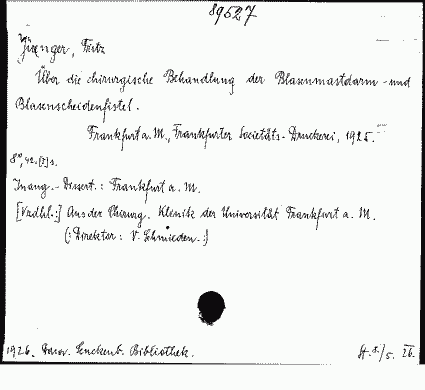 89527
Jünger, Fritz
Über die chirurgische Behandlung der Blasenmastdarm- und
Blasenscheidenfistel.
Frankfurt a. M., Frankfurter Societäts-Druckerei, 1925.
8°, 42. [2] s.
Inaug.-Dissert.: Frankfurt a. M.
[Vrdhl.:] Aus der Chirurg. Klinik der Universität Frankfurt a. M.
(: Direktor: V. Schmieden. :)
1926. Senckenb. Bibliothek.
/5. 26.